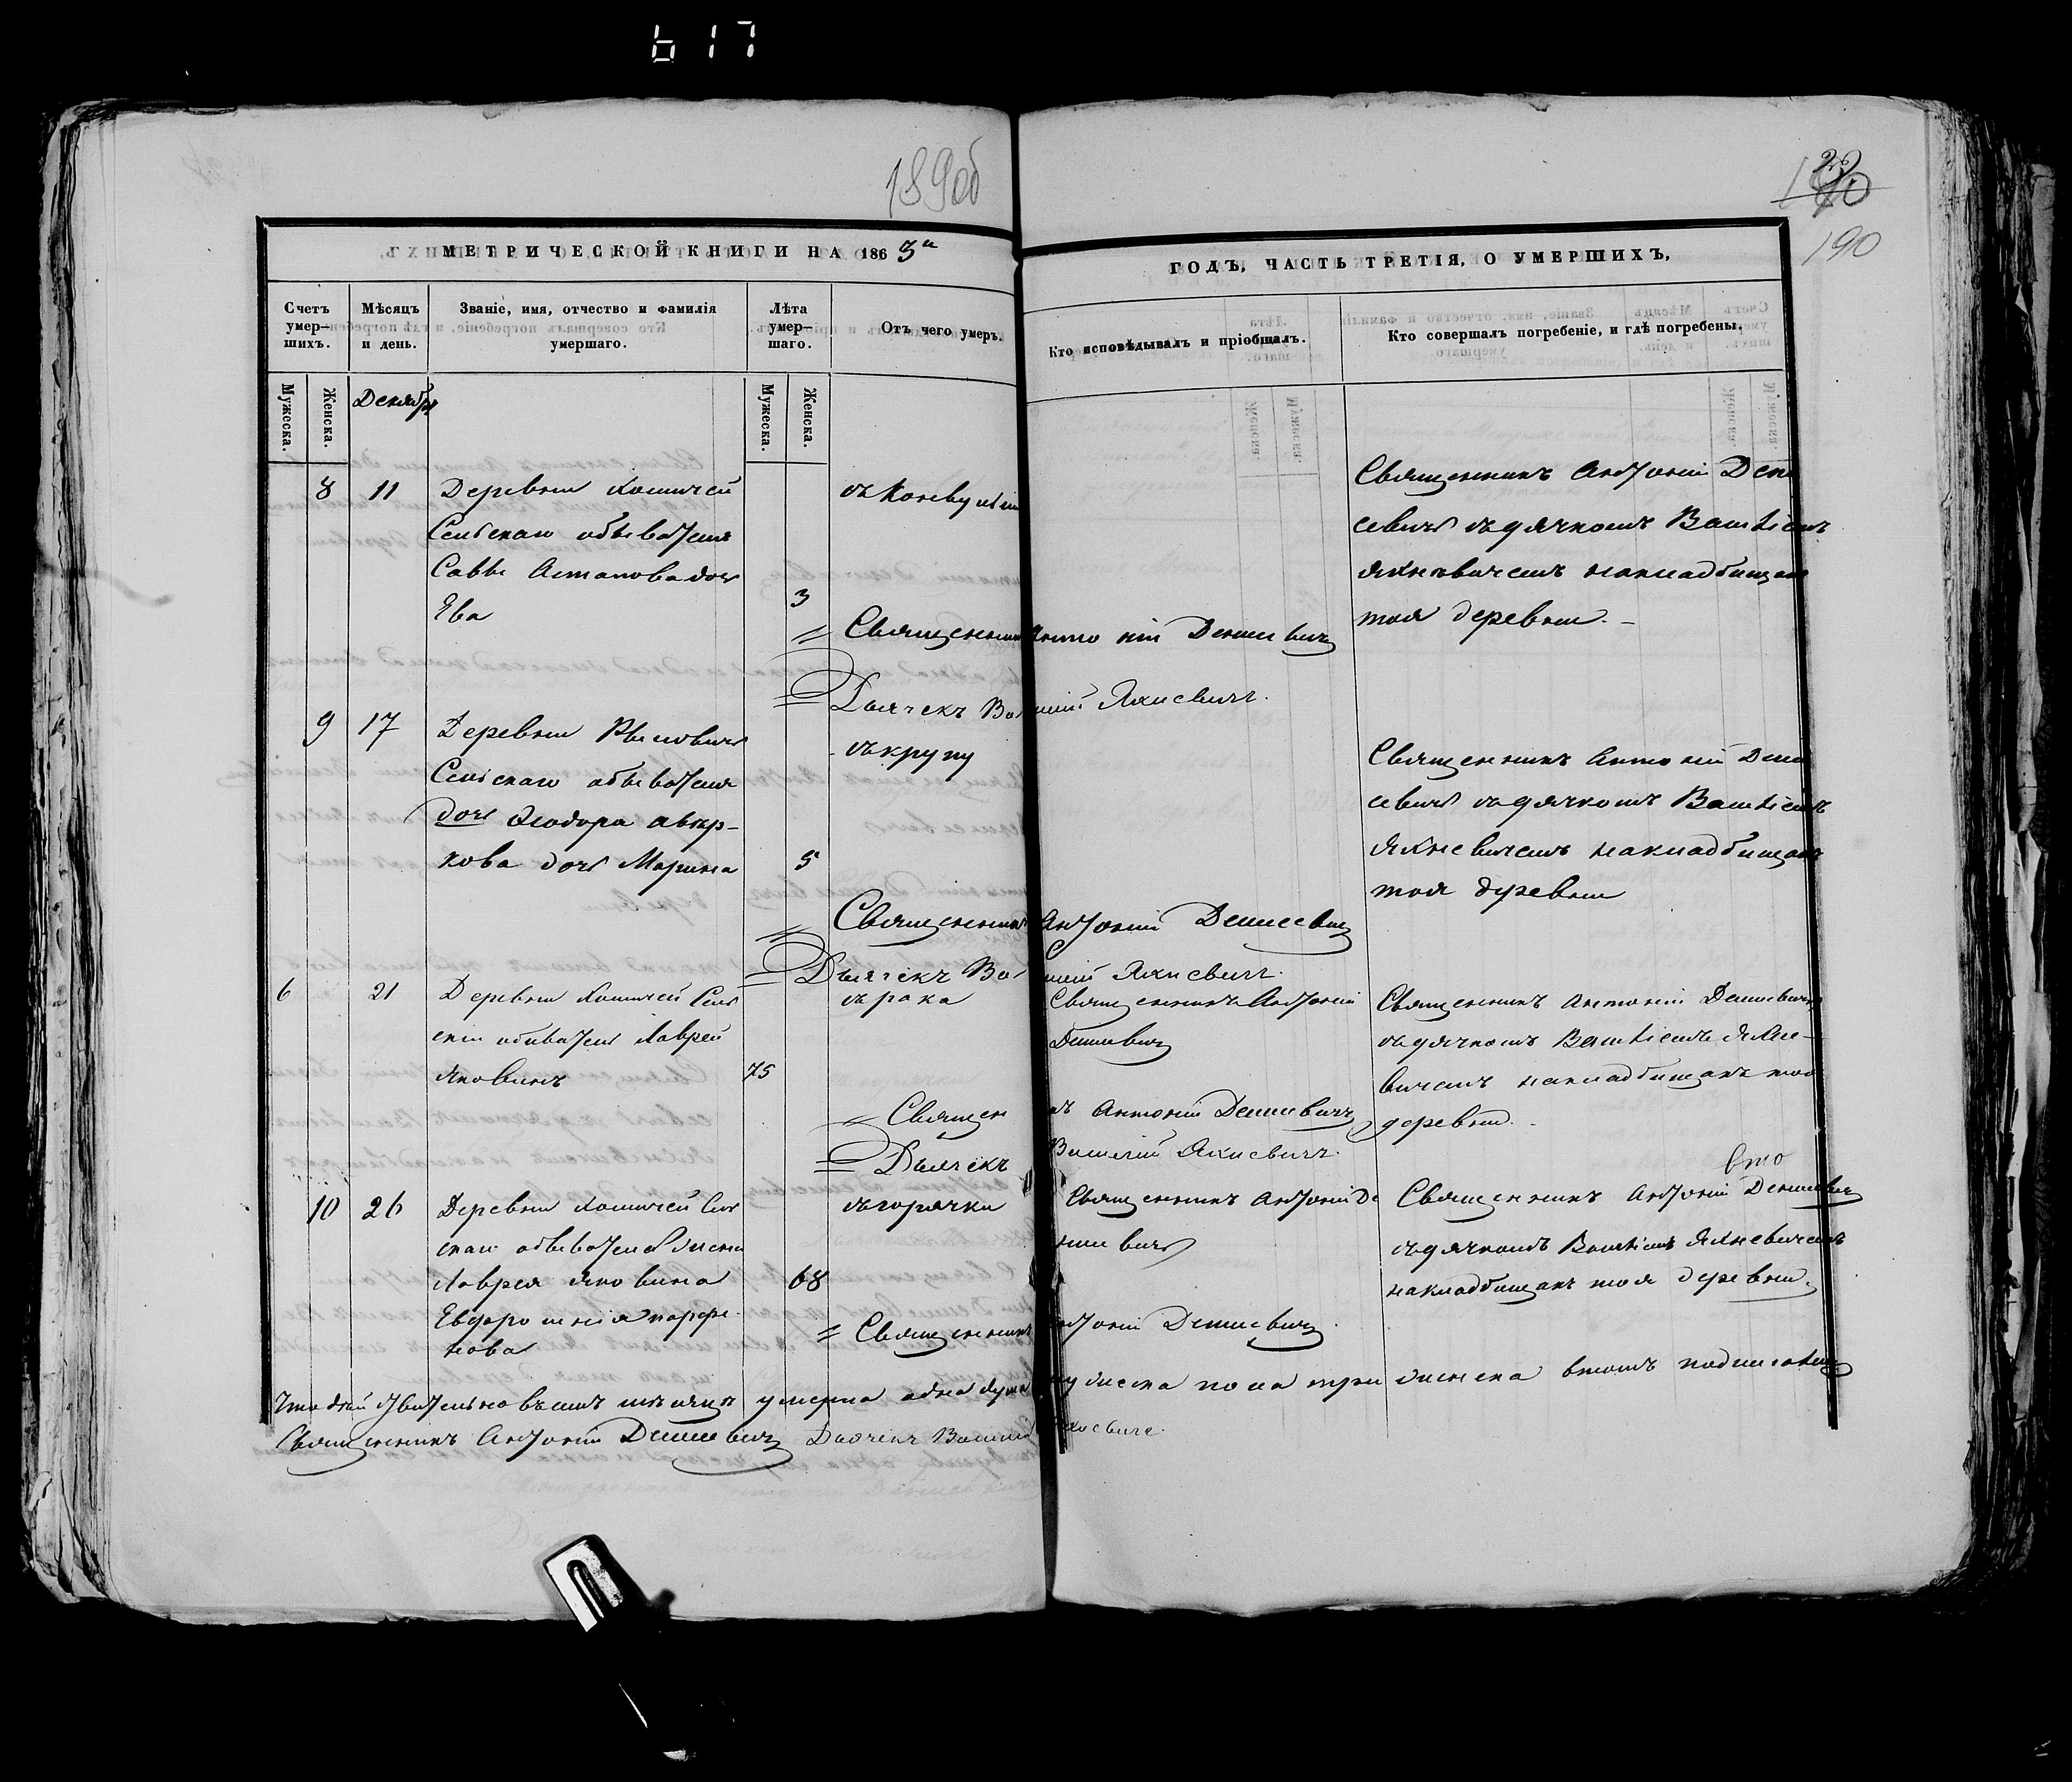 617
189об
190
МЕТРИЧЕСКОЙ КНИГИ НА 1863й
ГОДЪ, ЧАСТЬ ТРЕТІЯ, О УМЕРШИХЪ,
190
Счетъ умер-шихъ.
Мѣсяцъ и день.
Званіе, имя, отчество и фамилія умершаго.
Лѣта умер-шаго.
Отъ чего умеръ.
Кто исповѣдывалъ и пріобщалъ.
Кто совершалъ погребеніе, и гдѣ погребены.
Мужеска.
Женска.
Декабрь
Мужеска.
Женска.
8 11 Деревни Хомичей
Сельскаго обывателя
Саввы Астапова дочь
Ева
3
съ Конвульсіи
Священникъ Антоній Дени
севичъ съ дячкомъ Василіемъ
Якневичемъ на кладбищѣ
тоя деревни. –
Священникъ Антоній Денисевичъ
Дьячекъ Василій Якневичъ.
9 17 Деревни
Сельскаго обывателя
дочь Ѳеодора Авер-
кова дочь Марина
5
съ крупу
Священникъ Антоній Дени
севичъ съ дячкомъ Василіемъ
Якневичемъ на кладбищѣ
тоя деревни
Священникъ Антоній Денисевичъ
Дьячекъ Василій Якневичъ.
6 21 Деревни Хомичей Сель
скій обыватель Лаврей
Яковинъ
75
съ рака
Священникъ Антоній
Денисевичъ
Священникъ Антоній Денисевичъ
съ дячкомъ Василіемъ Якне-
вичемъ на кладбищахъ тоя
деревни. –
Священникъ Антоній Денисевичъ
Дьячекъ Василій Якневичъ.
10 26 Деревни Хомичей Сель
скаго обывателя жена
Лаврея Яковина
Евфросинія Парфе-
нова
68
съ горячки
Священникъ Антоній Де
нисевичъ
Священникъ Антоній Денисевичъ
съ дячкомъ Василіемъ Якневичемъ
на кладбищахъ тоя деревни.
Священникъ Антоній Денисевичъ
Что дѣйствительно въ семъ мѣсяцѣ умерла одна душа мужеска пола три женска в томъ подписались
Священникъ Антоній Денисевичъ Дьячекъ Василій Якневичъ.